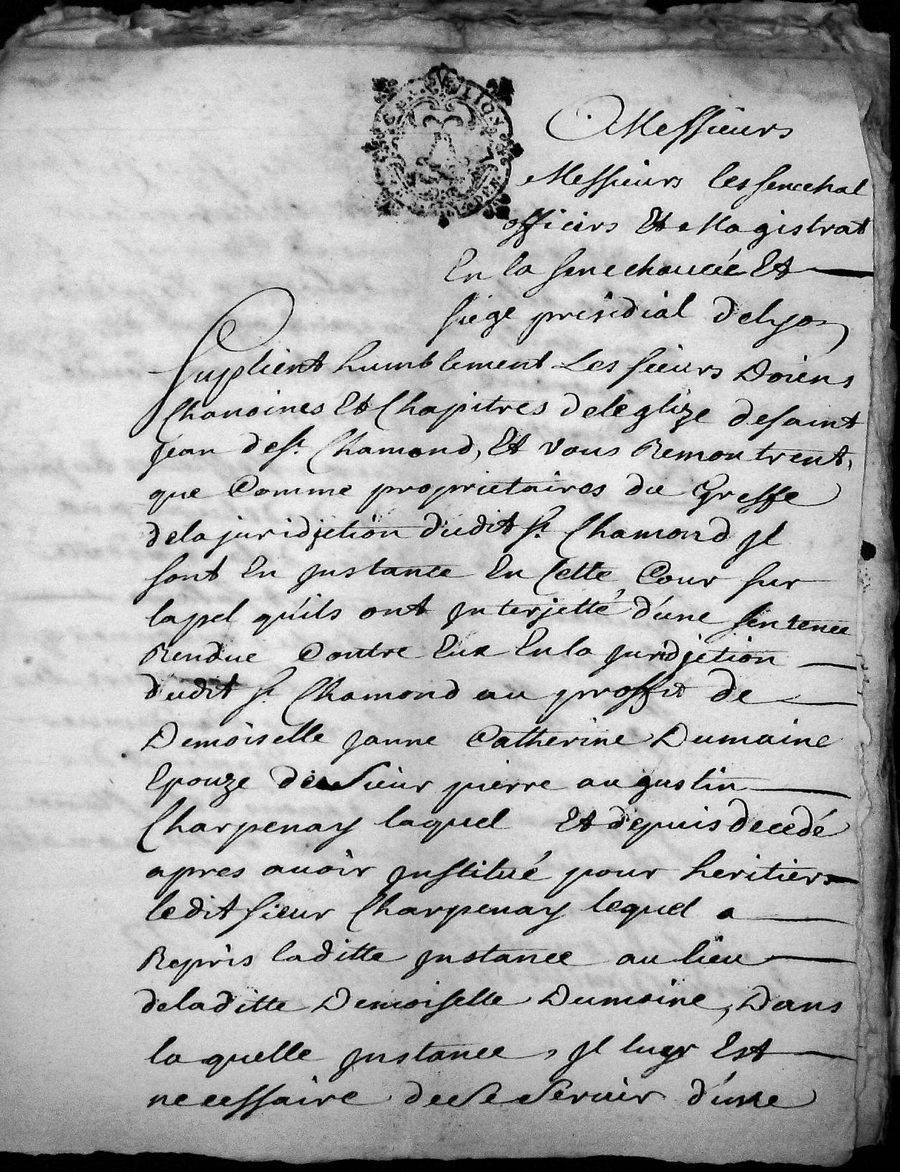 Messieurs
Messieurs les senechal
officiers Et Magistrat
En la senechaucée Et
siege présidial delyon
Suplient humblement Les sieurs Doiens
Chanoines Et Chapitres deléglize desaint
Jean de st. Chamond, Et vous Remontrent,
que Comme proprietaires du Greffe
dela juridjction dudit st. Chamond jl
sont En jnstance En Cette Cour sur
lapel quils ont jnterjetté d'une sentence
Rendue Contre Eux Enla juridjction
dudit st. Chamond au proffit de
Demoiselle janne Catherine Dumaine
Epouze de sieur pierre augustin
Charpenay laquel Et depuis decedé
apres avoir jnstitué pour heritiers
ledit sieur Charpenay lequel a
Repris laditte jnstance au lieu
deladitte Demoiselle Dumaine, Dans
la quelle jnstance, jl luy Est
necessaire de se servir d'une